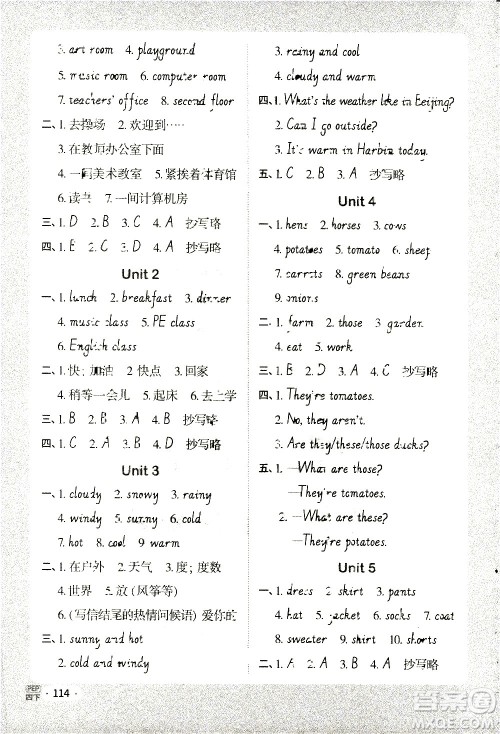 3. art room 4. playground
5. music room 6. computer room
7. teachers' office 8. second floor
二、1. 去操场 2. 欢迎到……
3. 在教师办公室下面
4. 一间美术教室 5. 紧挨着体育馆
6. 读书 7. 一间计算机房
三、1. D 2. B 3. C 4. A 抄写略
四、1. C 2. B 3. D 4. A 抄写略
Unit 2
一、1. lunch 2. breakfast 3. dinner
4. music class 5. PE class
6. English class
二、1. 快;加油 2. 快点 3. 回家
4. 稍等一会儿 5. 起床 6. 去上学
三、1. B 2. B 3. A 4. B 抄写略
四、1. C 2. A 3. D 4. B 抄写略
Unit 3
一、1. cloudy 2. snowy 3. rainy
4. windy 5. sunny 6. cold
7. hot 8. cool 9. warm
二、1. 在户外 2. 天气 3. 度;度数
4. 世界 5. 放(风筝等)
6. (写信结尾的热情问候语) 爱你的
三、1. sunny and hot
2. cold and windy
3. rainy and cool
4. cloudy and warm
四、1. What's the weather like in Beijing?
2. Can I go outside?
3. It's warm in Harbin today.
五、1. D 2. A 3. C 4. B 抄写略
Unit 4
一、1. hens 2. horses 3. cows
4. potatoes 5. tomato 6. sheep
7. carrots 8. green beans
9. onions
二、1. farm 2. those 3. garden
4. eat 5. work
三、1. E 2. D 3. C 4. B 5. A 抄写略
四、1. They're tomatoes.
2. No, they aren't.
3. Are they/these/those ducks?
五、1. —What are these?
—They're tomatoes.
2. —What are those?
—They're potatoes.
Unit 5
一、1. dress 2. skirt 3. pants
4. hat 5. jacket 6. socks 7. coat
8. sweater 9. shirt 10. shorts
二、1. D 2. C 3. B 4. A 抄写略
PEP
四下 · 114 ·
答案